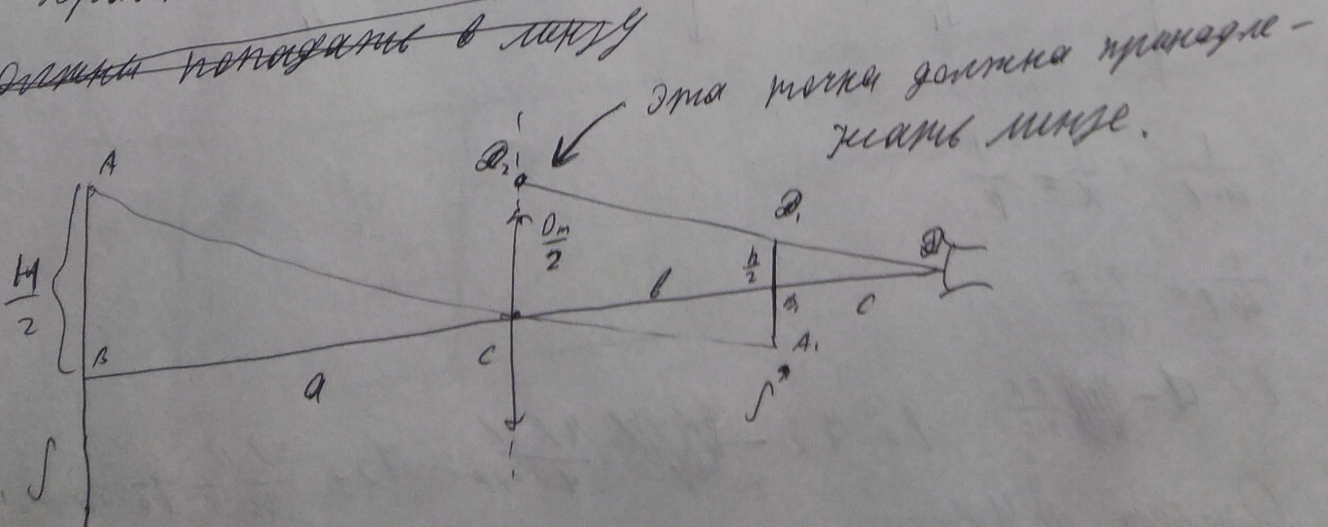 должны попадать в линзу
Эта точка должна принадле-
жать линзе.
A
D₂
D₁
D
Dm
2
H
2
h
2
b
B₁
c
B
C
A₁
a
S
S*